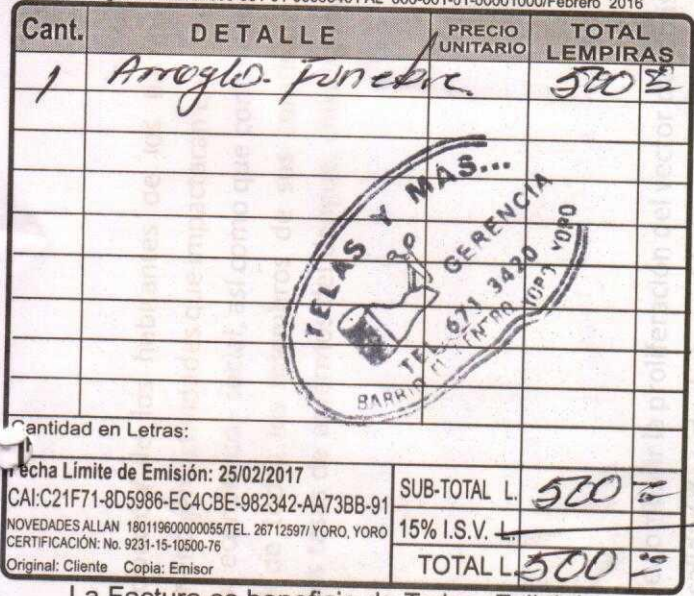 001-01-00001000/Febrero 2016
Cant. DETALLE PRECIO UNITARIO TOTAL LEMPIRAS
1 Arreglo Funebre 500
TELAS Y MAS...
GERENCIA
TEL 671 3420
BARRIO EL CENTRO YORO YORO
Cantidad en Letras:
Fecha Límite de Emisión: 25/02/2017
CAI:C21F71-8D5986-EC4CBE-982342-AA73BB-91
NOVEDADES ALLAN 180119600000055/TEL. 26712597/ YORO, YORO
CERTIFICACIÓN: No. 9231-15-10500-76
Original: Cliente Copia: Emisor
SUB-TOTAL L. 500
15% I.S.V. L.
TOTAL L. 500